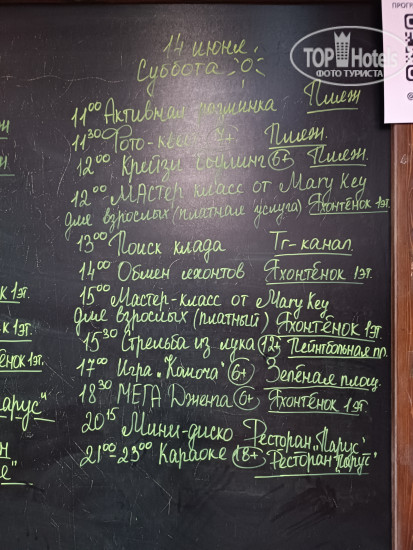 ПРОГР
TOP Hotels
ФОТО ТУРИСТА
14 июня
Суббота
11⁰⁰ Активная разминка Пляж
11³⁰ Фото-квест 7+ Пляж.
12⁰⁰ Крейзи боулинг 6+ Пляж.
12⁰⁰ МАстер класс от Mary Key
для взрослых (платная услуга) Яхонтёнок 1эт.
13⁰⁰ Поиск клада Тг-канал.
14⁰⁰ Обмен яхонтов Яхонтёнок 1эт.
15⁰⁰ Мастер-класс от Mary Key
для взрослых (платный) Яхонтёнок 1эт.
15³⁰ Стрельба из лука 12+ Пейнтбольная пл.
17⁰⁰ Игра „Камоча" 6+ Зелёная площ.
18³⁰ МЕГА Дженга 6+ Яхонтёнок 1эт.
20¹⁵ Мини-диско Ресторан „Парус"
21⁰⁰-23⁰⁰ Караоке 18+ Ресторан „Парус"
к 1эт.
к 1эт.
ёнок 1эт.
арус"